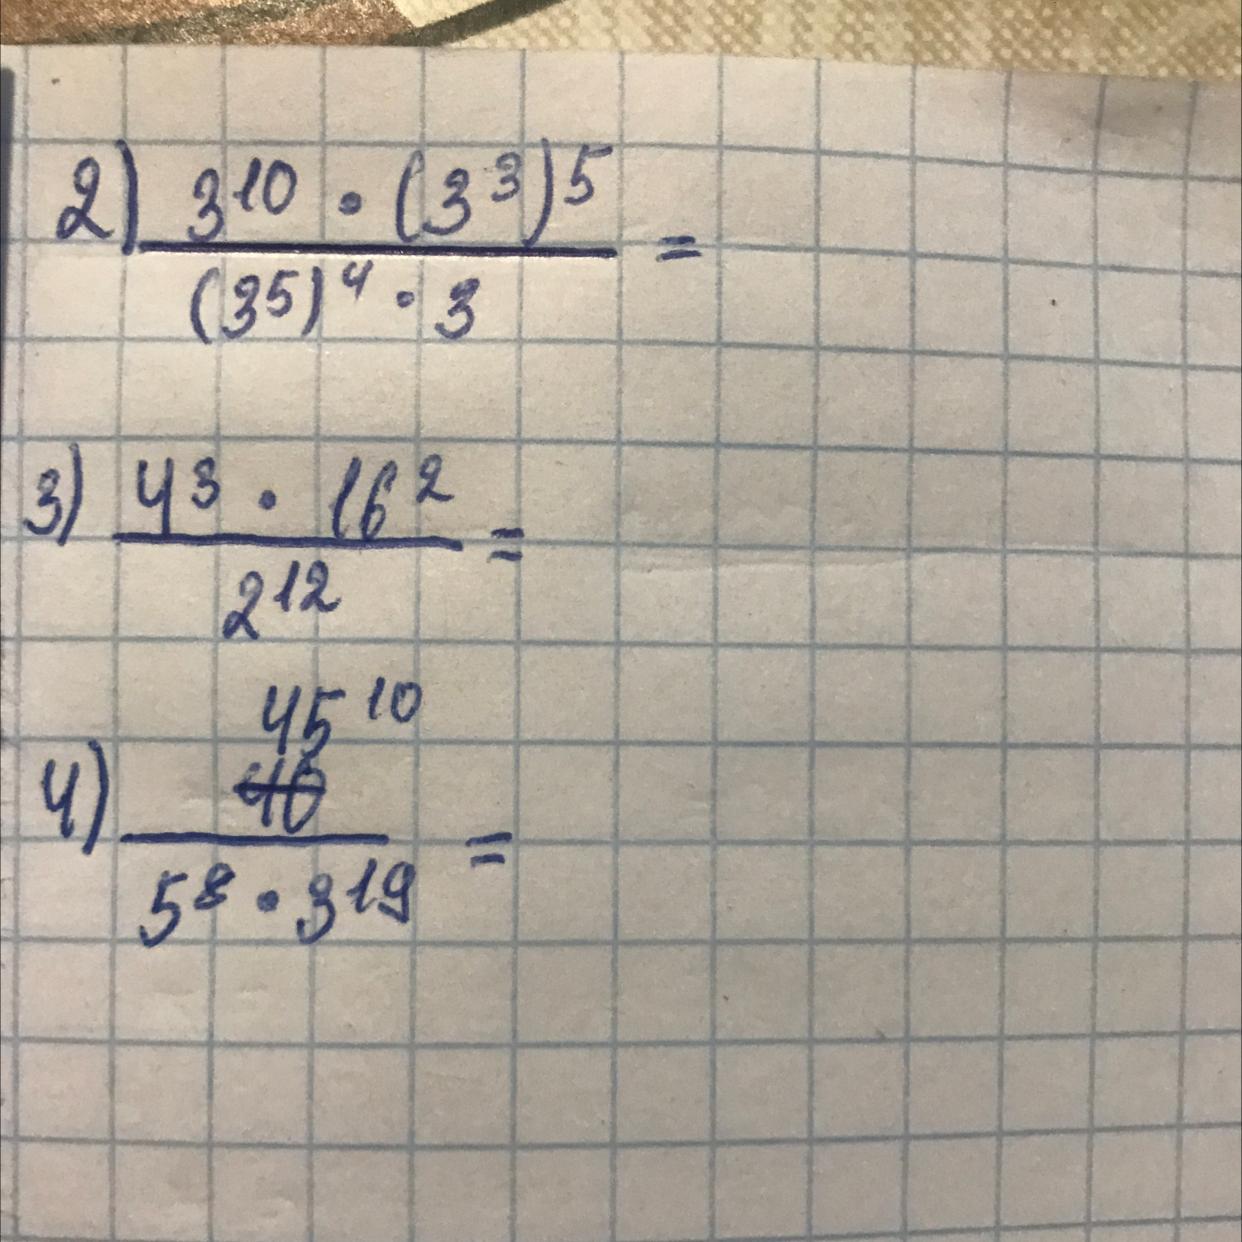 2) 3^10 · (3^3)^5
(3^5)^4 · 3 =
3) 4^3 · 16^2
2^12 =
45^10
4) 40
5^8 · 3^19 =